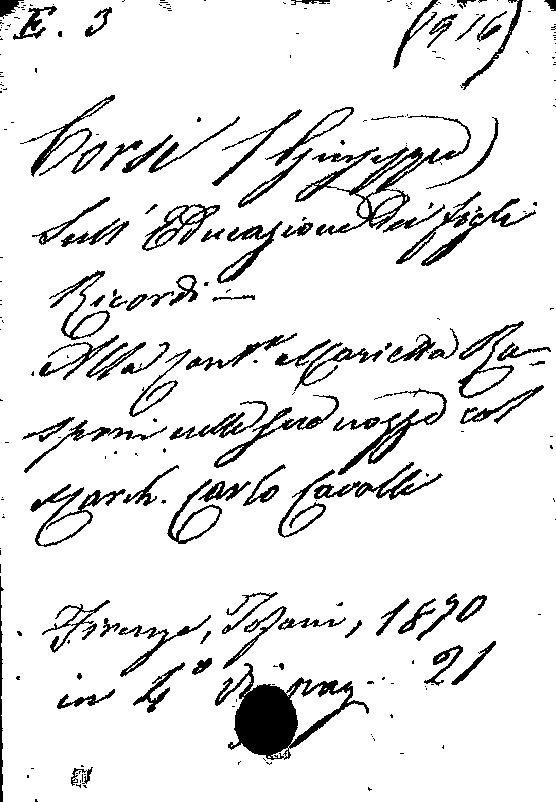 E. 3 (916)
Corsi (Giuseppe)
Sull' Educazione dei figli
Ricordi —
Alla Cont.ª Marietta Ra-
sponi nelle sue nozze col
March. Carlo Cavalli
Firenze, Tofani, 1870
in 4° di pag. 21